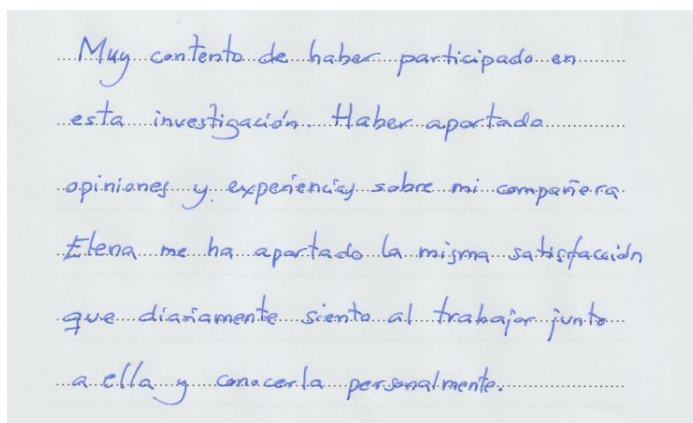 Muy contento de haber participado en
esta investigación. Haber aportado
opiniones y experiencias sobre mi compañera
Elena me ha aportado la misma satisfacción
que diariamente siento al trabajar junto
a ella y conocerla personalmente.